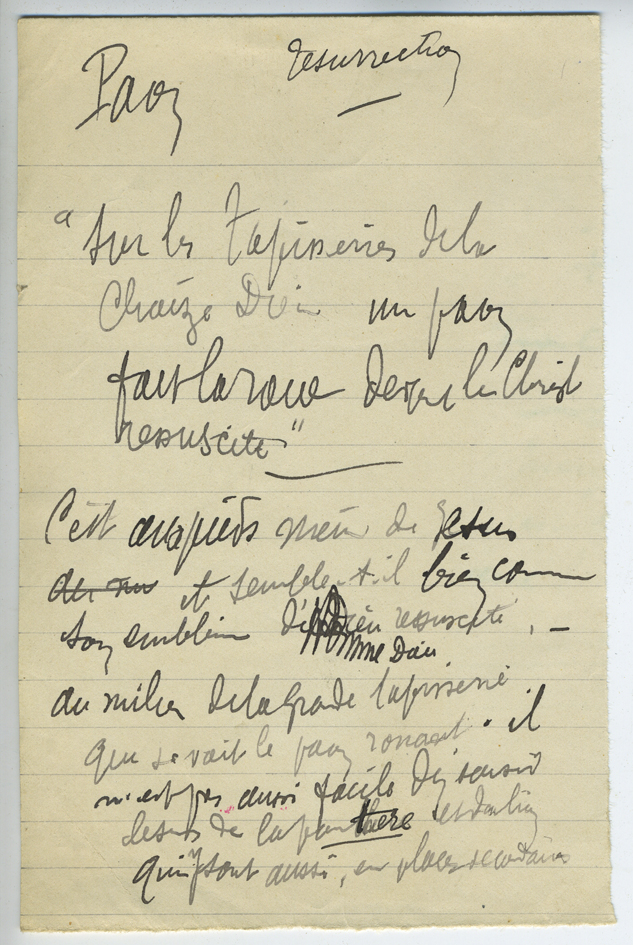 Paon
resurrection
"Sur les tapisseries de la
Chaize Dieu un paon
fait la roue devant le Christ
ressuscité"
C'est aux pieds même de Jesus
et semble-t-il bien comme
son emblème Dieu ressuscité, —
homme Dieu
au milieu de la grande tapisserie
que se voit le paon rouant. il
n'est pas aussi facile d'y saisir
le sens de la panthere et du lion
qui y sont aussi, en places secondaires